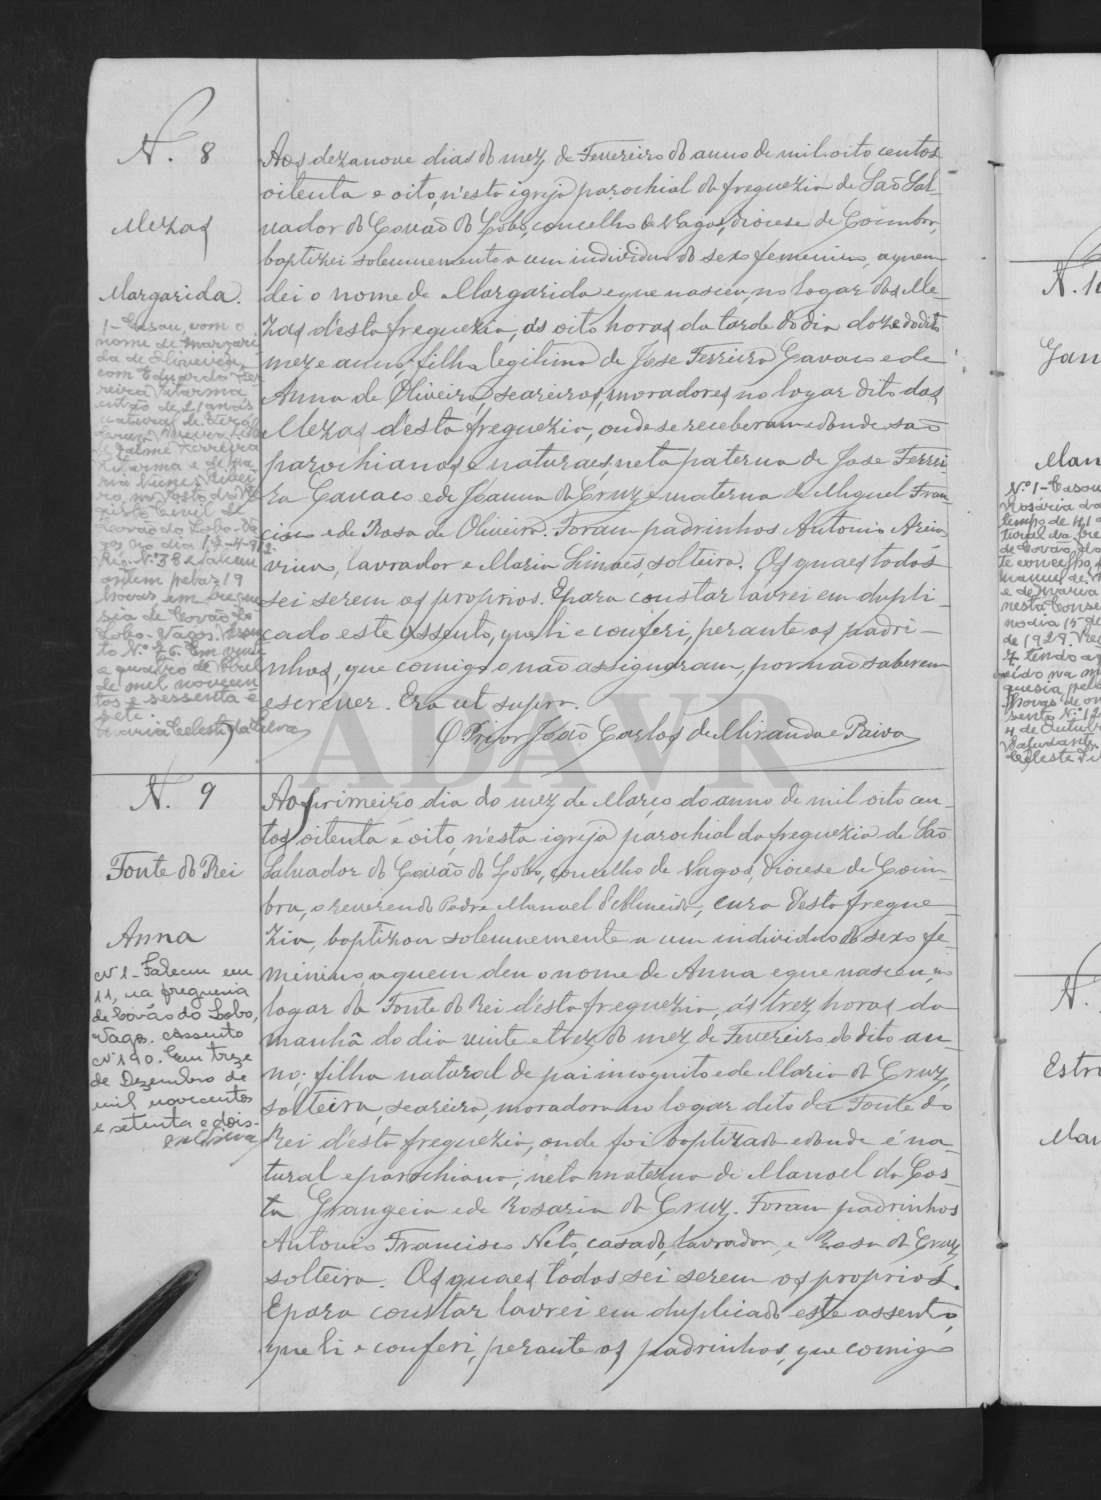 N. 8
Mezas
Margarida.
1 - Casou, com o
nome de Margari
da de Oliveira,
com Eduardo Fer
reira
de 21 anos
natural de
Jaime Ferreira
e de Ma
ria Nunes
ro, no Posto do Re
gisto Civil de
Covão do Lobo - Va
gos no dia 17-4-912.
Reg. Nº 38 e faleceu
ontem pelas 19
horas em fregue
sia de Covão do
Lobo - Vagos. Assen
to Nº 26. Em vinte
e quatro de Abril
de mil novecen
tos e sessenta e
sete.
Maria Celeste da Silva
Aos dezanove dias do mez de Fevereiro do anno de mil oito centos
oitenta e oito, n'esta igreja parochial da freguezia de São Sal-
vador do Covão do Lobo, concelho de Vagos, diocese de Coimbra,
baptizei solemnemente a um individuo do sexo femenino, a quem
dei o nome de Margarida e que nasceu, no logar das Me-
zas d'esta freguezia, ás oito horas da tarde do dia doze do dito
mez e anno, filha legitima de Jose Ferreira Gavaio e de
Anna de Oliveira seareiros, moradores no logar dito das
Mezas d'esta freguezia, onde se receberam e donde são
parochianos e naturaes, neta paterna de Jose Ferrei-
ra Gavaio e de Joanna da Cruz e materna de Miguel Fran-
cisco e de Rosa de Oliveira. Foram padrinhos Antonio
lavrador e Maria Simões, solteira. Os quaes todos
sei serem os proprios. E para constar lavrei em dupli-
cado este assento, que li e conferi, perante os padri-
nhos, que comigo não assignaram, por não saberem
escrever. Era ut supra.
O Prior João Carlos de Miranda e Paiva
N. 9
Fonte do Rei
Anna
Nº 1 - Faleceu em
11, na freguesia
de Covão do Lobo,
Vagos. Assento
Nº 190. Em treze
de Dezembro de
mil novecentos
e setenta e dois.
Ao primeiro dia do mez de Março do anno de mil oito cen-
tos oitenta e oito, n'esta igreja parochial da freguezia de São
Salvador do Covão do Lobo, concelho de Vagos, diocese de Coim-
bra, o reverendo Padre Manuel d'Almeida, cura d'esta fregue-
zia, baptizou solemnemente a um individuo do sexo fe-
minino, a quem deu o nome de Anna e que nasceu, no
logar da Fonte do Rei d'esta freguezia, ás trez horas da
manhã do dia vinte e trez do mez de Fevereiro do dito an-
no; filha natural de pai incognito e de Maria da Cruz,
solteira, seareira, moradora no logar dito da Fonte do
Rei d'esta freguezia, onde foi baptizada e donde é na-
tural e parochiana; neta materna de Manoel da Cos-
ta Grangeia e de Rosaria da Cruz. Foram padrinhos
Antonio Francisco Neto, casado, lavrador, e Rosa da Cruz,
solteira. Os quaes todos sei serem os proprios.
E para constar lavrei em duplicado este assento,
que li e conferi, perante os padrinhos, que comigo
ADAVR
N. 10
Man
Nº 1 - Casou
Rosária da
de 1928.